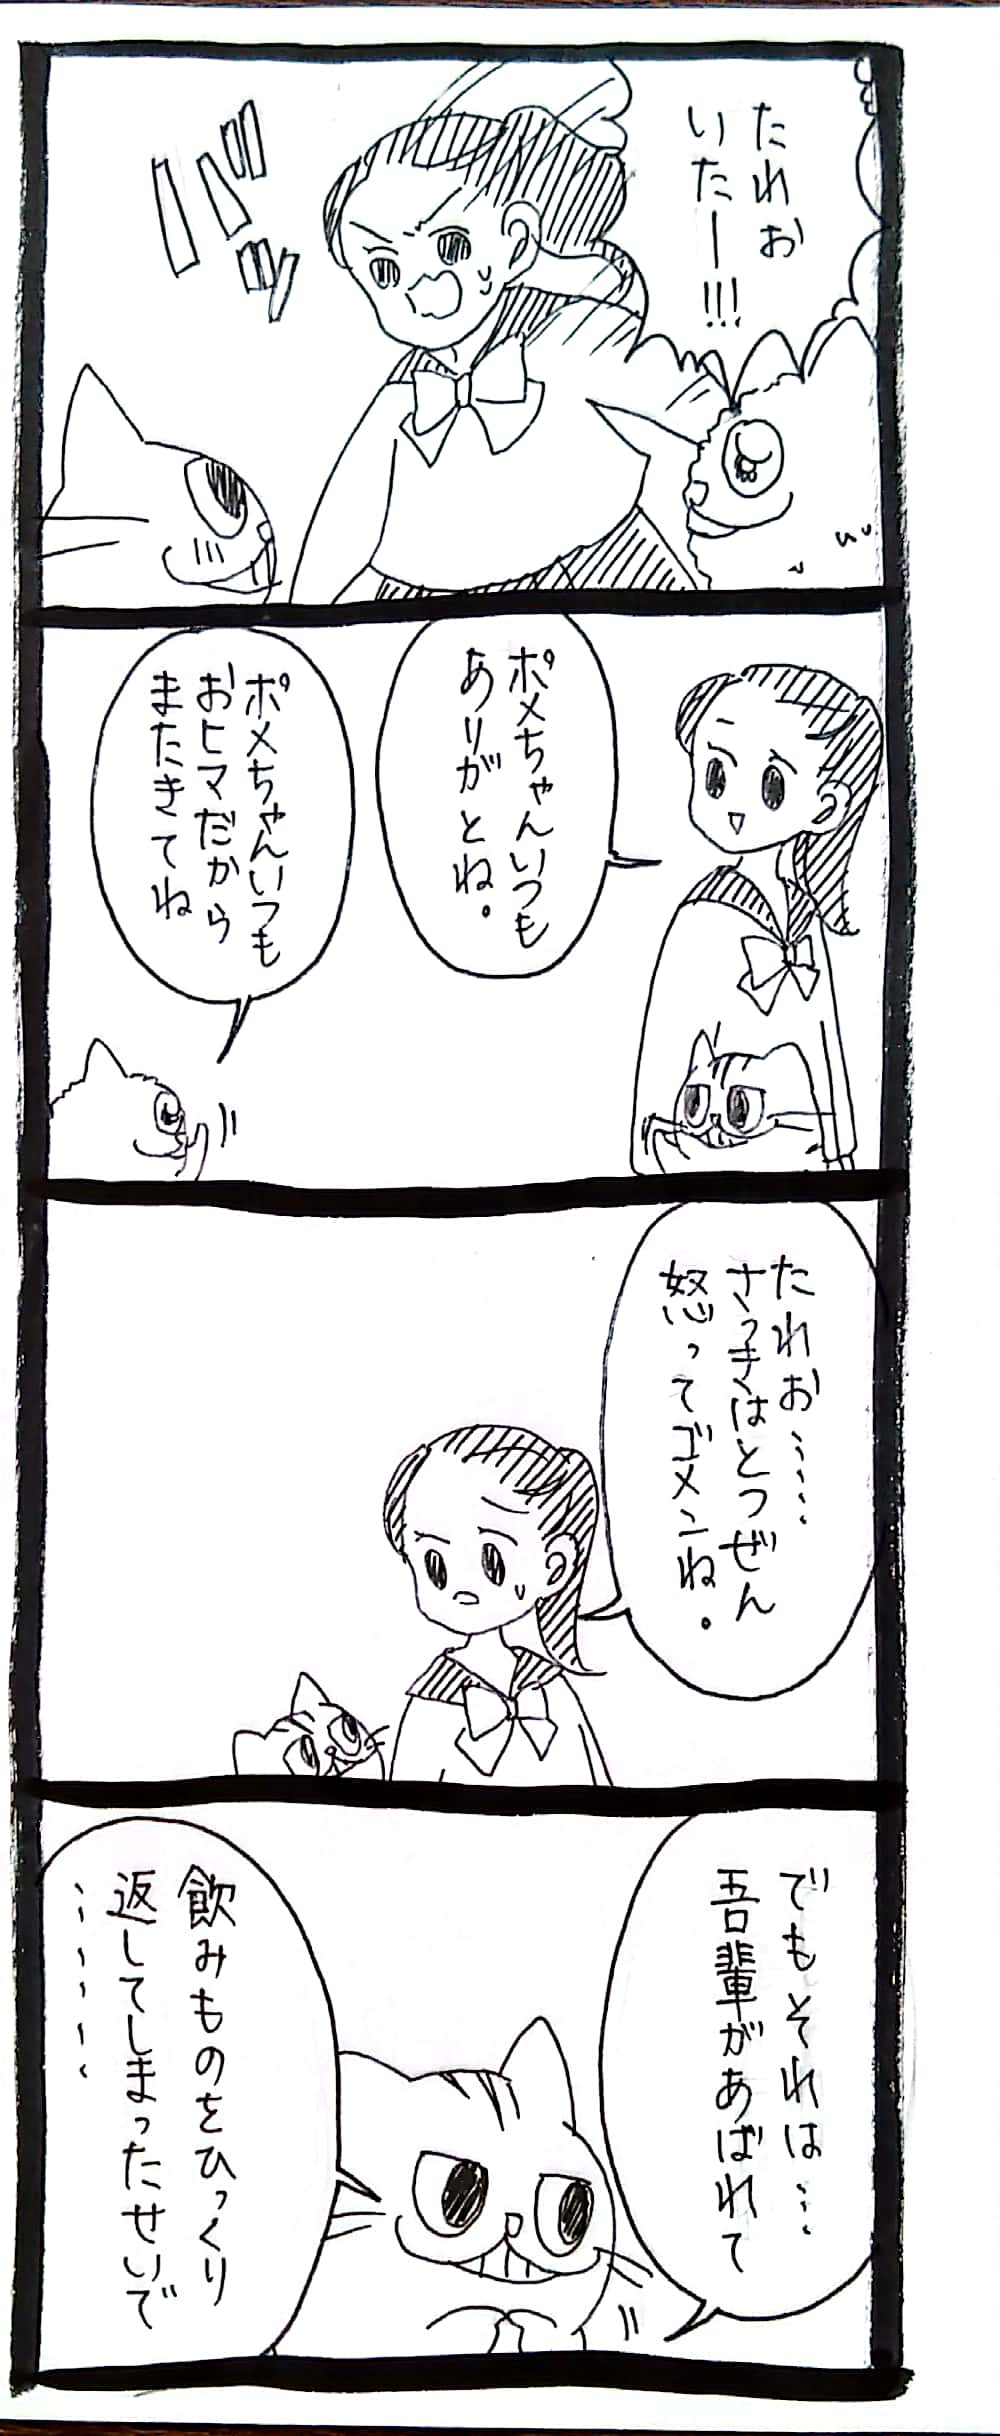 たれお
いたー!!!
バババッ
ポメちゃんいつも
ありがとね。
ポメちゃんいつも
おヒマだから
またきてね
たれお……
さっきはとつぜん
怒ってゴメンね。
でもそれは…
吾輩があばれて
飲みものをひっくり
返してしまったせいで
……